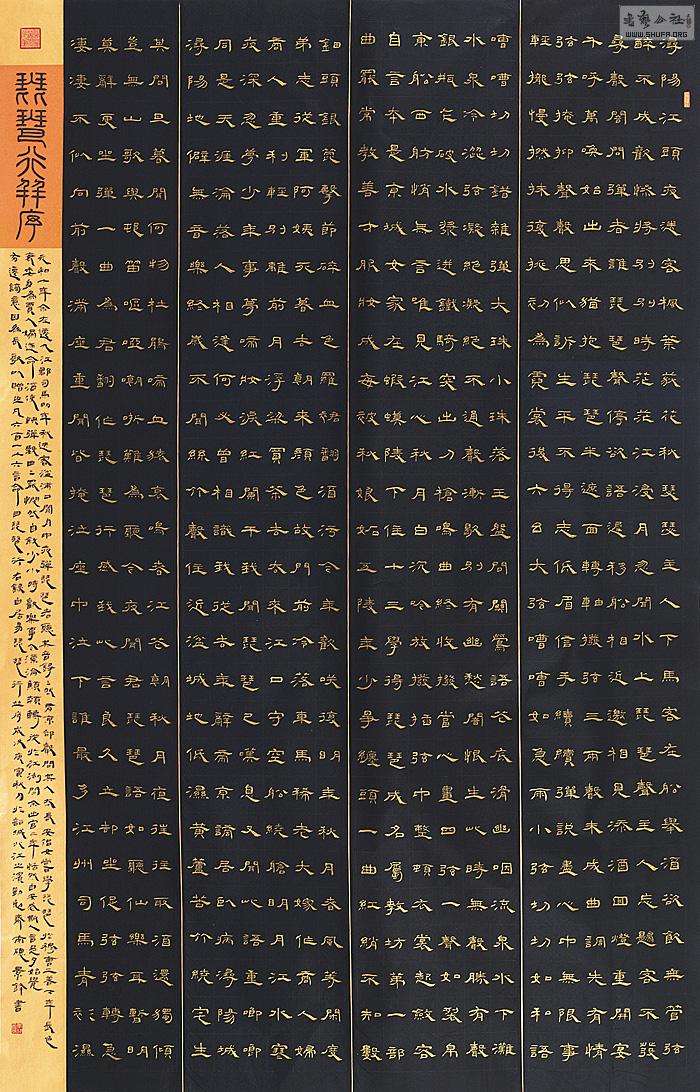 潯陽江頭夜送客楓葉荻花秋瑟瑟主人下馬客在船舉酒欲飲無管弦
醉不成歡慘將別別時茫茫江浸月忽聞水上琵琶聲主人忘歸客不發
尋聲闇問彈者誰琵琶聲停欲語遲移船相近邀相見添酒回燈重開宴
千呼萬喚始出來猶抱琵琶半遮面轉軸撥弦三兩聲未成曲調先有情
弦弦掩抑聲聲思似訴生平不得志低眉信手續續彈說盡心中無限事
輕攏慢撚抹復挑初為霓裳後六幺大弦嘈嘈如急雨小弦切切如私語
嘈嘈切切錯雜彈大珠小珠落玉盤間關鶯語花底滑幽咽流泉水下灘
水泉冷澀弦凝絕凝絕不通聲漸歇別有幽愁闇恨生此時無聲勝有聲
銀瓶乍破水漿迸鐵騎突出刀槍鳴曲終收撥當心畫四弦一聲如裂帛
東船西舫悄無言唯見江心秋月白沉吟放撥插弦中整頓衣裳起斂容
自言本是京城女家在蝦蟆陵下住十三學得琵琶成名屬教坊第一部
曲罷常教善才服妝成每被秋娘妬五陵年少爭纏頭一曲紅綃不知數
鈿頭銀篦擊節碎血色羅裙翻酒污今年歡笑復明年秋月春風等閑度
弟走從軍阿姨死暮去朝來顏色故門前冷落車馬稀老大嫁作商人婦
商人重利輕別離前月浮梁買茶去去來江口守空船繞艙明月江水寒
夜深忽夢少年事夢啼妝淚紅闌干我聞琵琶已嘆息又聞此語重唧唧
同是天涯淪落人相逢何必曾相識我從去年辭帝京謫居臥病潯陽城
潯陽地僻無音樂終歲不聞絲竹聲住近湓城地低濕黃蘆苦竹繞宅生
其間旦暮聞何物杜鵑啼血猿哀鳴春江花朝秋月夜往往取酒還獨傾
豈無山歌與村笛嘔啞嘲哳難為聽今夜聞君琵琶語如聽仙樂耳暫明
莫辭更坐彈一曲為君翻作琵琶行感我此言良久立卻坐促弦弦轉急
淒淒不似向前聲滿座重聞皆掩泣座中泣下誰最多江州司馬青衫濕
琵琶行并序
WWW.SHUFA.ORG